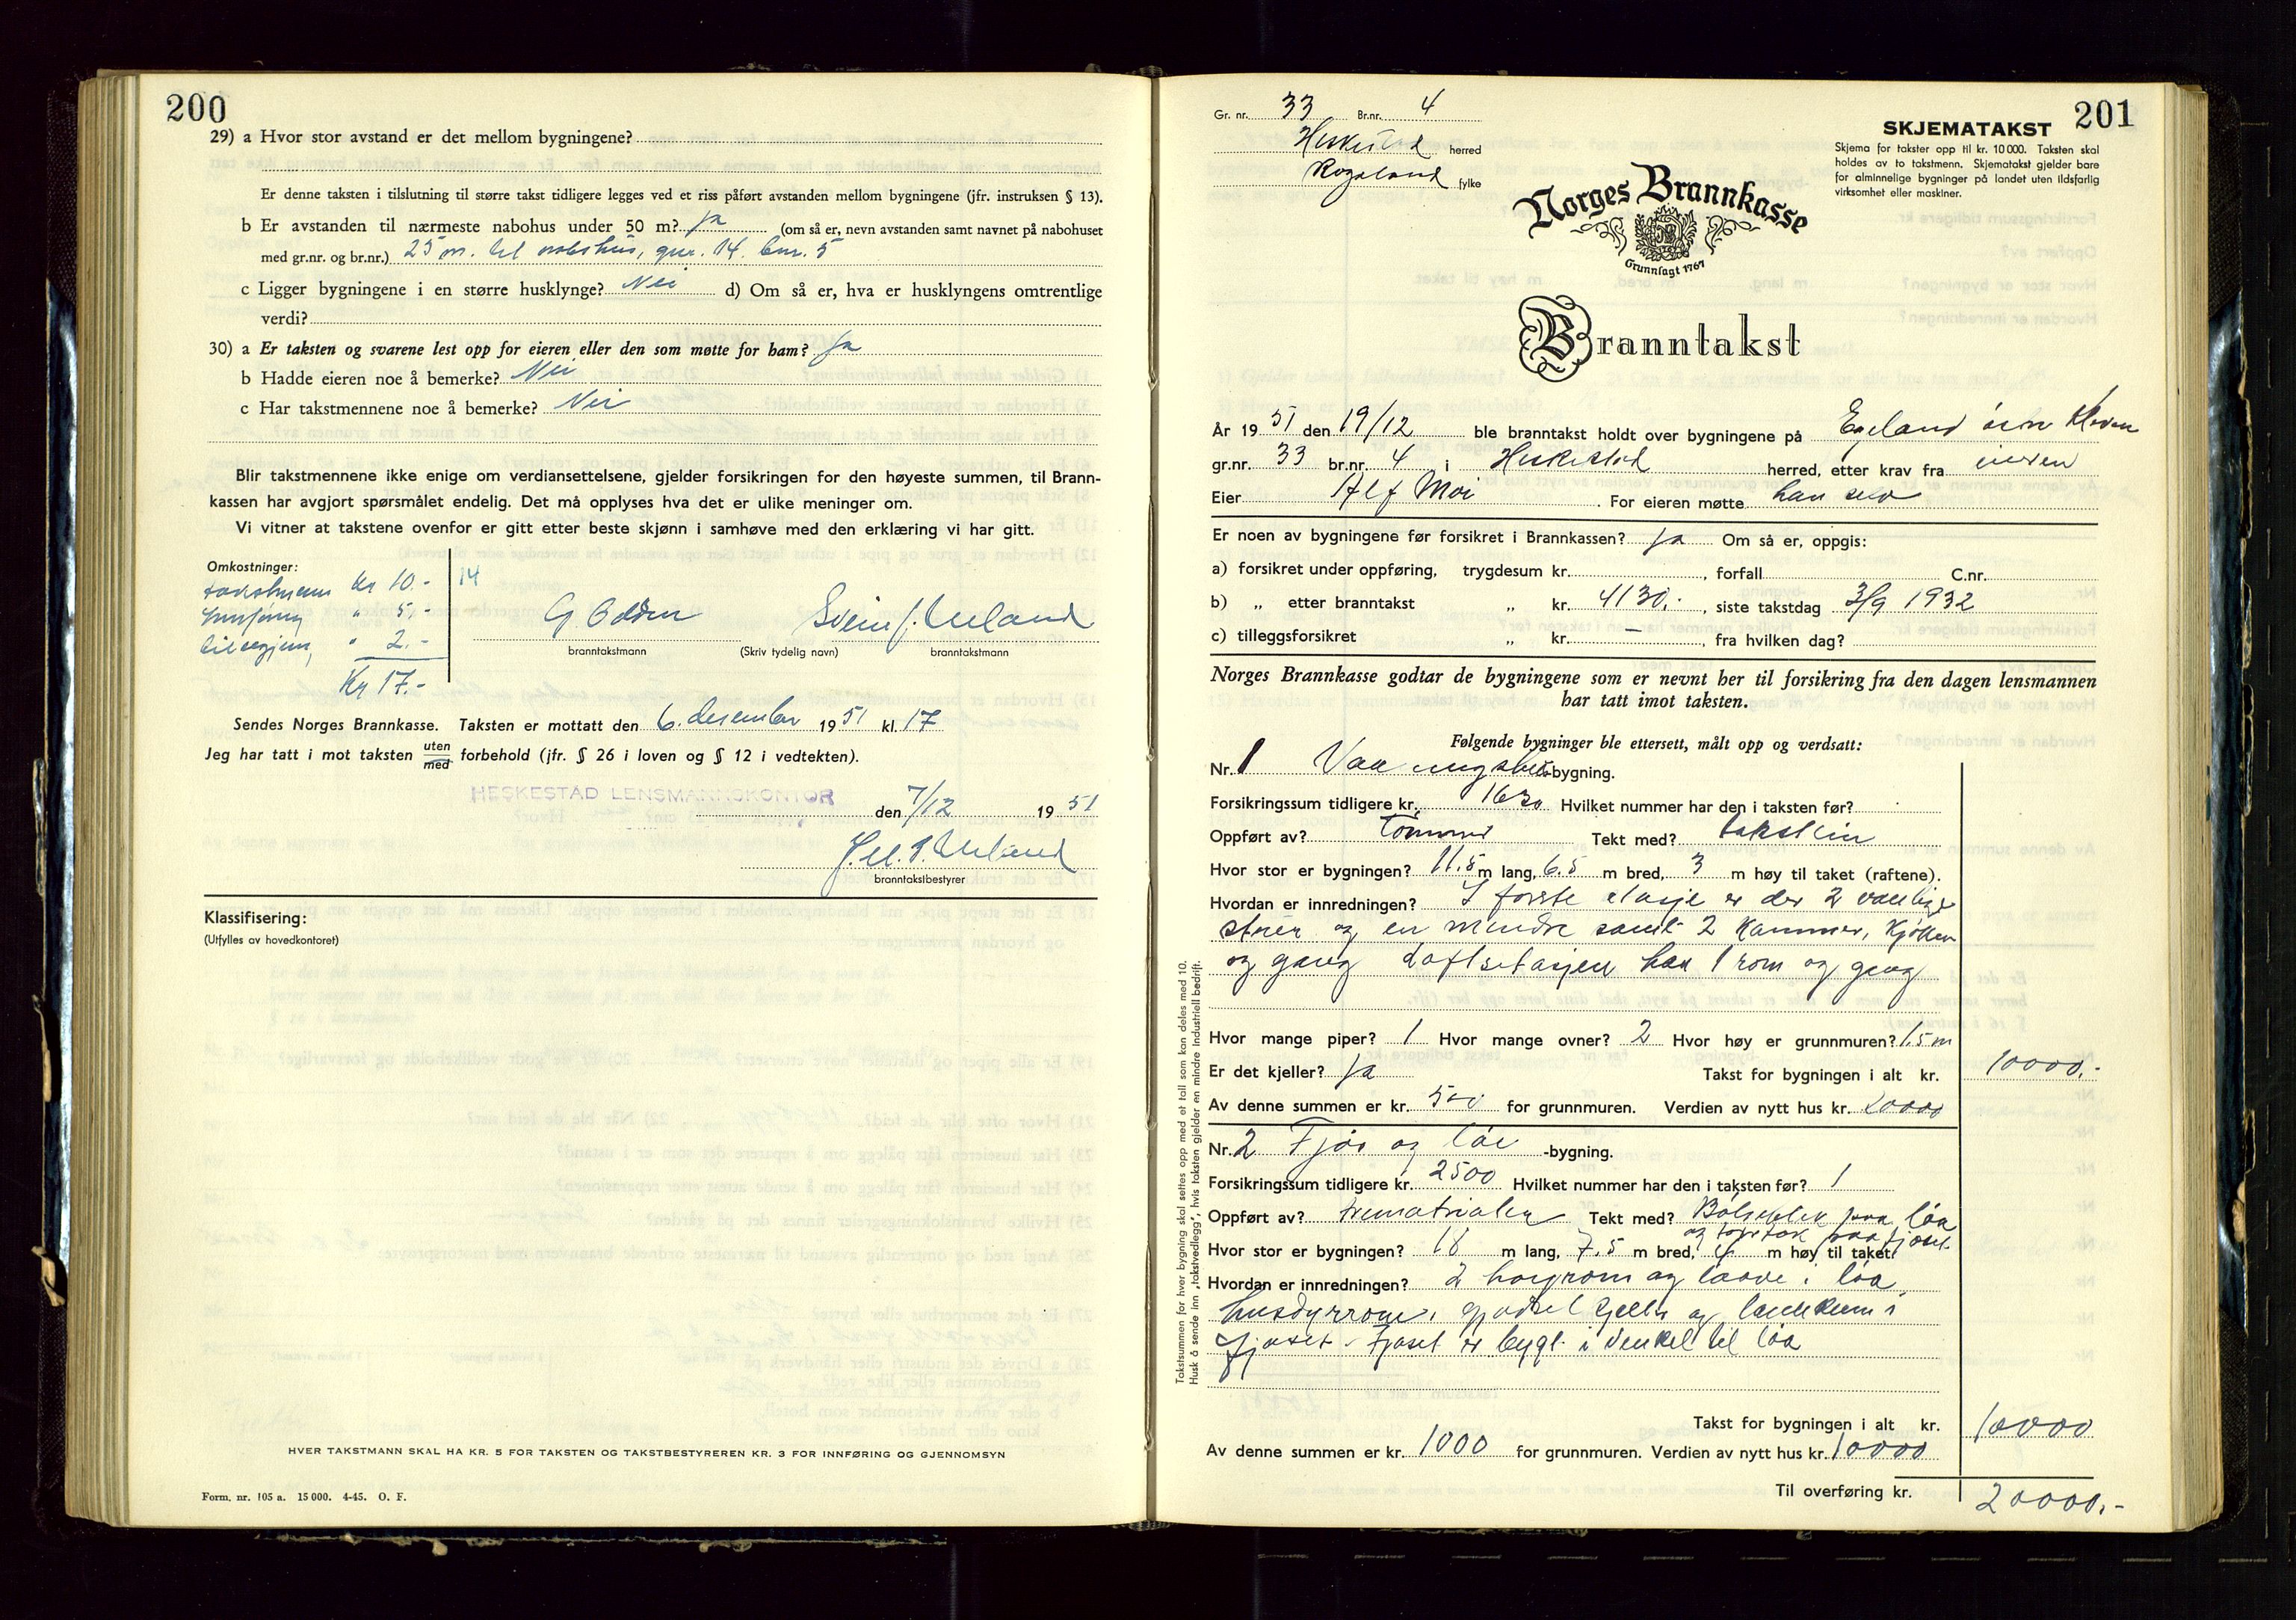 200
29) a Hvor stor avstand er det mellom bygningene?
Er denne taksten i tilslutning til større takst tidligere legges ved et riss påført avstanden mellom bygningene (jfr. instruksen § 13).
b Er avstanden til nærmeste nabohus under 50 m? ja (om så er, nevn avstanden samt navnet på nabohuset
med gr.nr. og br.nr.) 25 m. til gnr. 14. bnr. 5
c Ligger bygningene i en større husklynge? Nei d) Om så er, hva er husklyngens omtrentlige
verdi?
30) a Er taksten og svarene lest opp for eieren eller den som møtte for ham? Ja
b Hadde eieren noe å bemerke? Nei
c Har takstmennene noe å bemerke? Nei
Blir takstmennene ikke enige om verdiansettelsene, gjelder forsikringen for den høyeste summen, til Brann-
kassen har avgjort spørsmålet endelig. Det må opplyses hva det er ulike meninger om.
Vi vitner at takstene ovenfor er gitt etter beste skjønn i samhøve med den erklæring vi har gitt.
Omkostninger:
Kr 10.- 14
" 5.-
" 2.-
Kr 17.-
Svein J. Ueland
branntakstmann (Skriv tydelig navn) branntakstmann
Sendes Norges Brannkasse. Taksten er mottatt den 6. desember 1951 kl. 17
Jeg har tatt i mot taksten uten med forbehold (jfr. § 26 i loven og § 12 i vedtekten).
HESKESTAD LENSMANNSKONTOR den 7/12 1951
Ueland
branntakstbestyrer
Klassifisering:
(Utfylles av hovedkontoret)
HVER TAKSTMANN SKAL HA KR. 5 FOR TAKSTEN OG TAKSTBESTYREREN KR. 3 FOR INNFØRING OG GJENNOMSYN
Form. nr. 105 a. 15 000. 4-45. O. F.
201
Gr. nr. 33 Br.nr. 4
Heskestad herred
Rogaland fylke
SKJEMATAKST
Skjema for takster opp til kr. 10 000. Taksten skal
holdes av to takstmenn. Skjematakst gjelder bare
for alminnelige bygninger på landet uten ildsfarlig
virksomhet eller maskiner.
Norges Brannkasse
Grunnlagt 1767
Branntakst
År 1951 den 19/12 ble branntakst holdt over bygningene på Egeland
gr.nr. 33 br.nr. 4 i Heskestad herred, etter krav fra eieren
Eier Alf Moi For eieren møtte han selv
Er noen av bygningene før forsikret i Brannkassen? Ja Om så er, oppgis:
a) forsikret under oppføring, trygdesum kr. , forfall C.nr.
b) „ etter branntakst „ kr. 4130.- , siste takstdag 3/9 1932
c) tilleggsforsikret „ kr. – , fra hvilken dag?
Norges Brannkasse godtar de bygningene som er nevnt her til forsikring fra den dagen lensmannen
har tatt imot taksten.
Følgende bygninger ble ettersett, målt opp og verdsatt:
Nr. 1 Vaaningshus-bygning.
Forsikringssum tidligere kr. 1630 Hvilket nummer har den i taksten før?
Oppført av? Tømmer Tekt med? takstein
Hvor stor er bygningen? 11.5 m lang, 6.5 m bred, 3 m høy til taket (raftene).
Hvordan er innredningen? I første etasje er der 2 vanlige
stuer og en mindre samt 2 kammer, kjøkken
og gang Loftsetasjen har 1 rom og gang
Hvor mange piper? 1 Hvor mange ovner? 2 Hvor høy er grunnmuren? 1.5 m
Er det kjeller? Ja Takst for bygningen i alt kr. 10000.-
Av denne summen er kr. 500 for grunnmuren. Verdien av nytt hus kr. 20000
Nr. 2 Fjøs og løe -bygning.
Forsikringssum tidligere kr. 2500 Hvilket nummer har den i taksten før? 1
Oppført av? trematrialer Tekt med? Bølgeblek paa løa
og torvtak paa fjøset
Hvor stor er bygningen? 18 m lang, 7.5 m bred, 4 m høy til taket.
Hvordan er innredningen? 2 høyrom og laave i løa,
husdyrrom, gjødselkjeller og landkum i
fjøset - Fjøset er bygt i vinkel til løa
Takst for bygningen i alt kr. 10000
Av denne summen er kr. 1000 for grunnmuren. Verdien av nytt hus kr. 10000
Til overføring kr. 20000.-
Takstsummen for hver bygning skal settes opp med et tall som kan deles med 10.
Husk å sende inn „takstvedlegg", hvis taksten gjelder en mindre industriell bedrift.